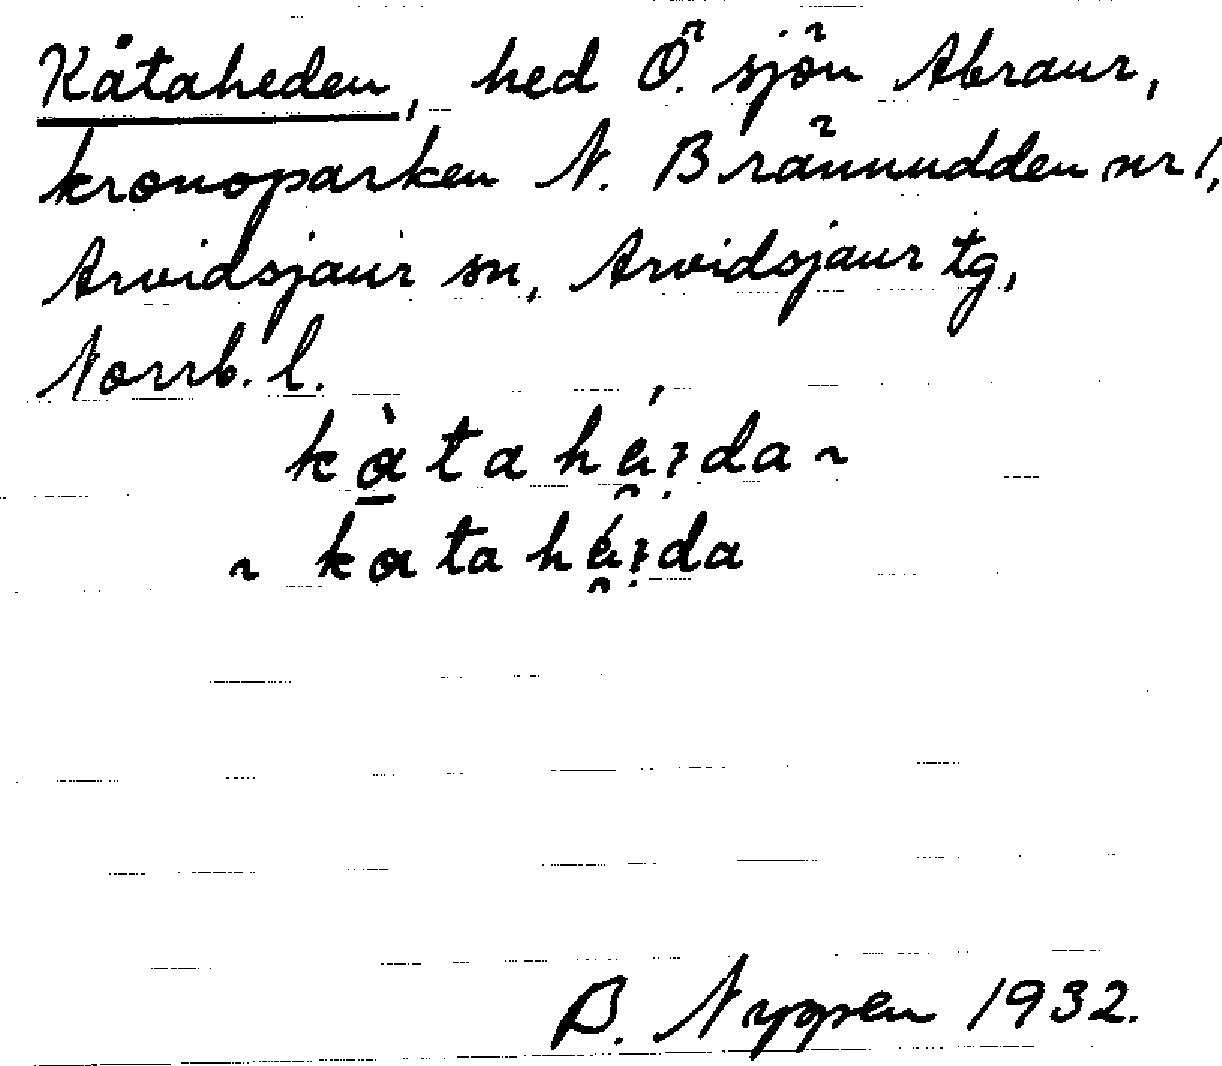 Kåtaheden, hed Ö. sjön Abraur,
kronoparken N. Brännudden nr 1,
Arvidsjaur sn, Arvidsjaur tg,
Norrb. l.
kå̀tahéi̯da ~
~ kåtahéi̯da
B. Nyppen 1932.